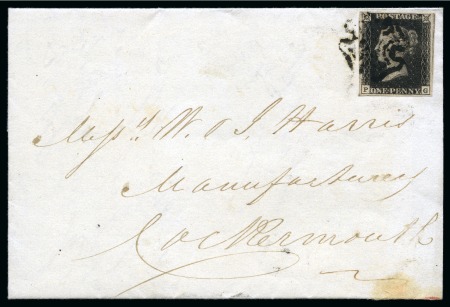 POSTAGE
P G
ONE PENNY
Messrs. W. & J. Harris
Manufacturers
Cockermouth